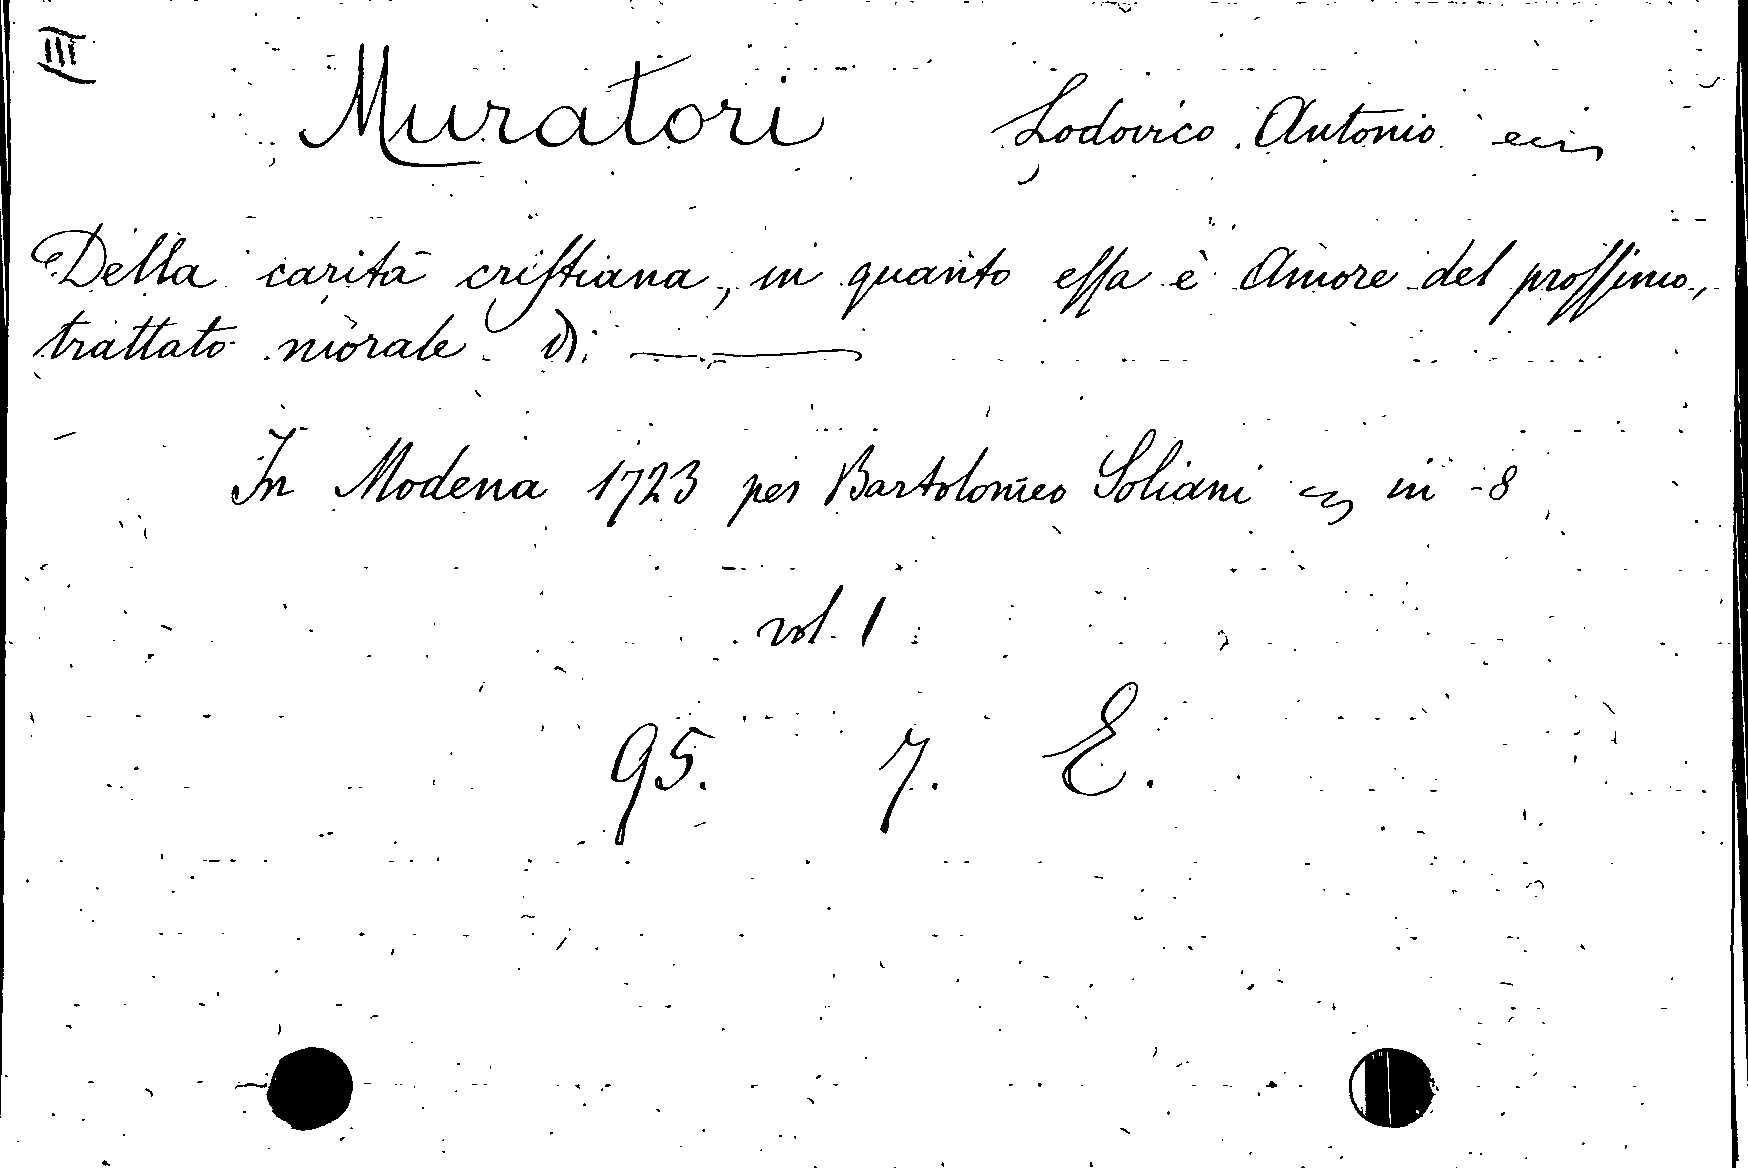 III
Muratori Lodovico Antonio
Della carità criſtiana, in quanto eſſa è Amore del proſſimo,
trattato morale di ———
In Modena 1723 per Bartolomeo Soliani in -8
vol. 1
95. 7. E.